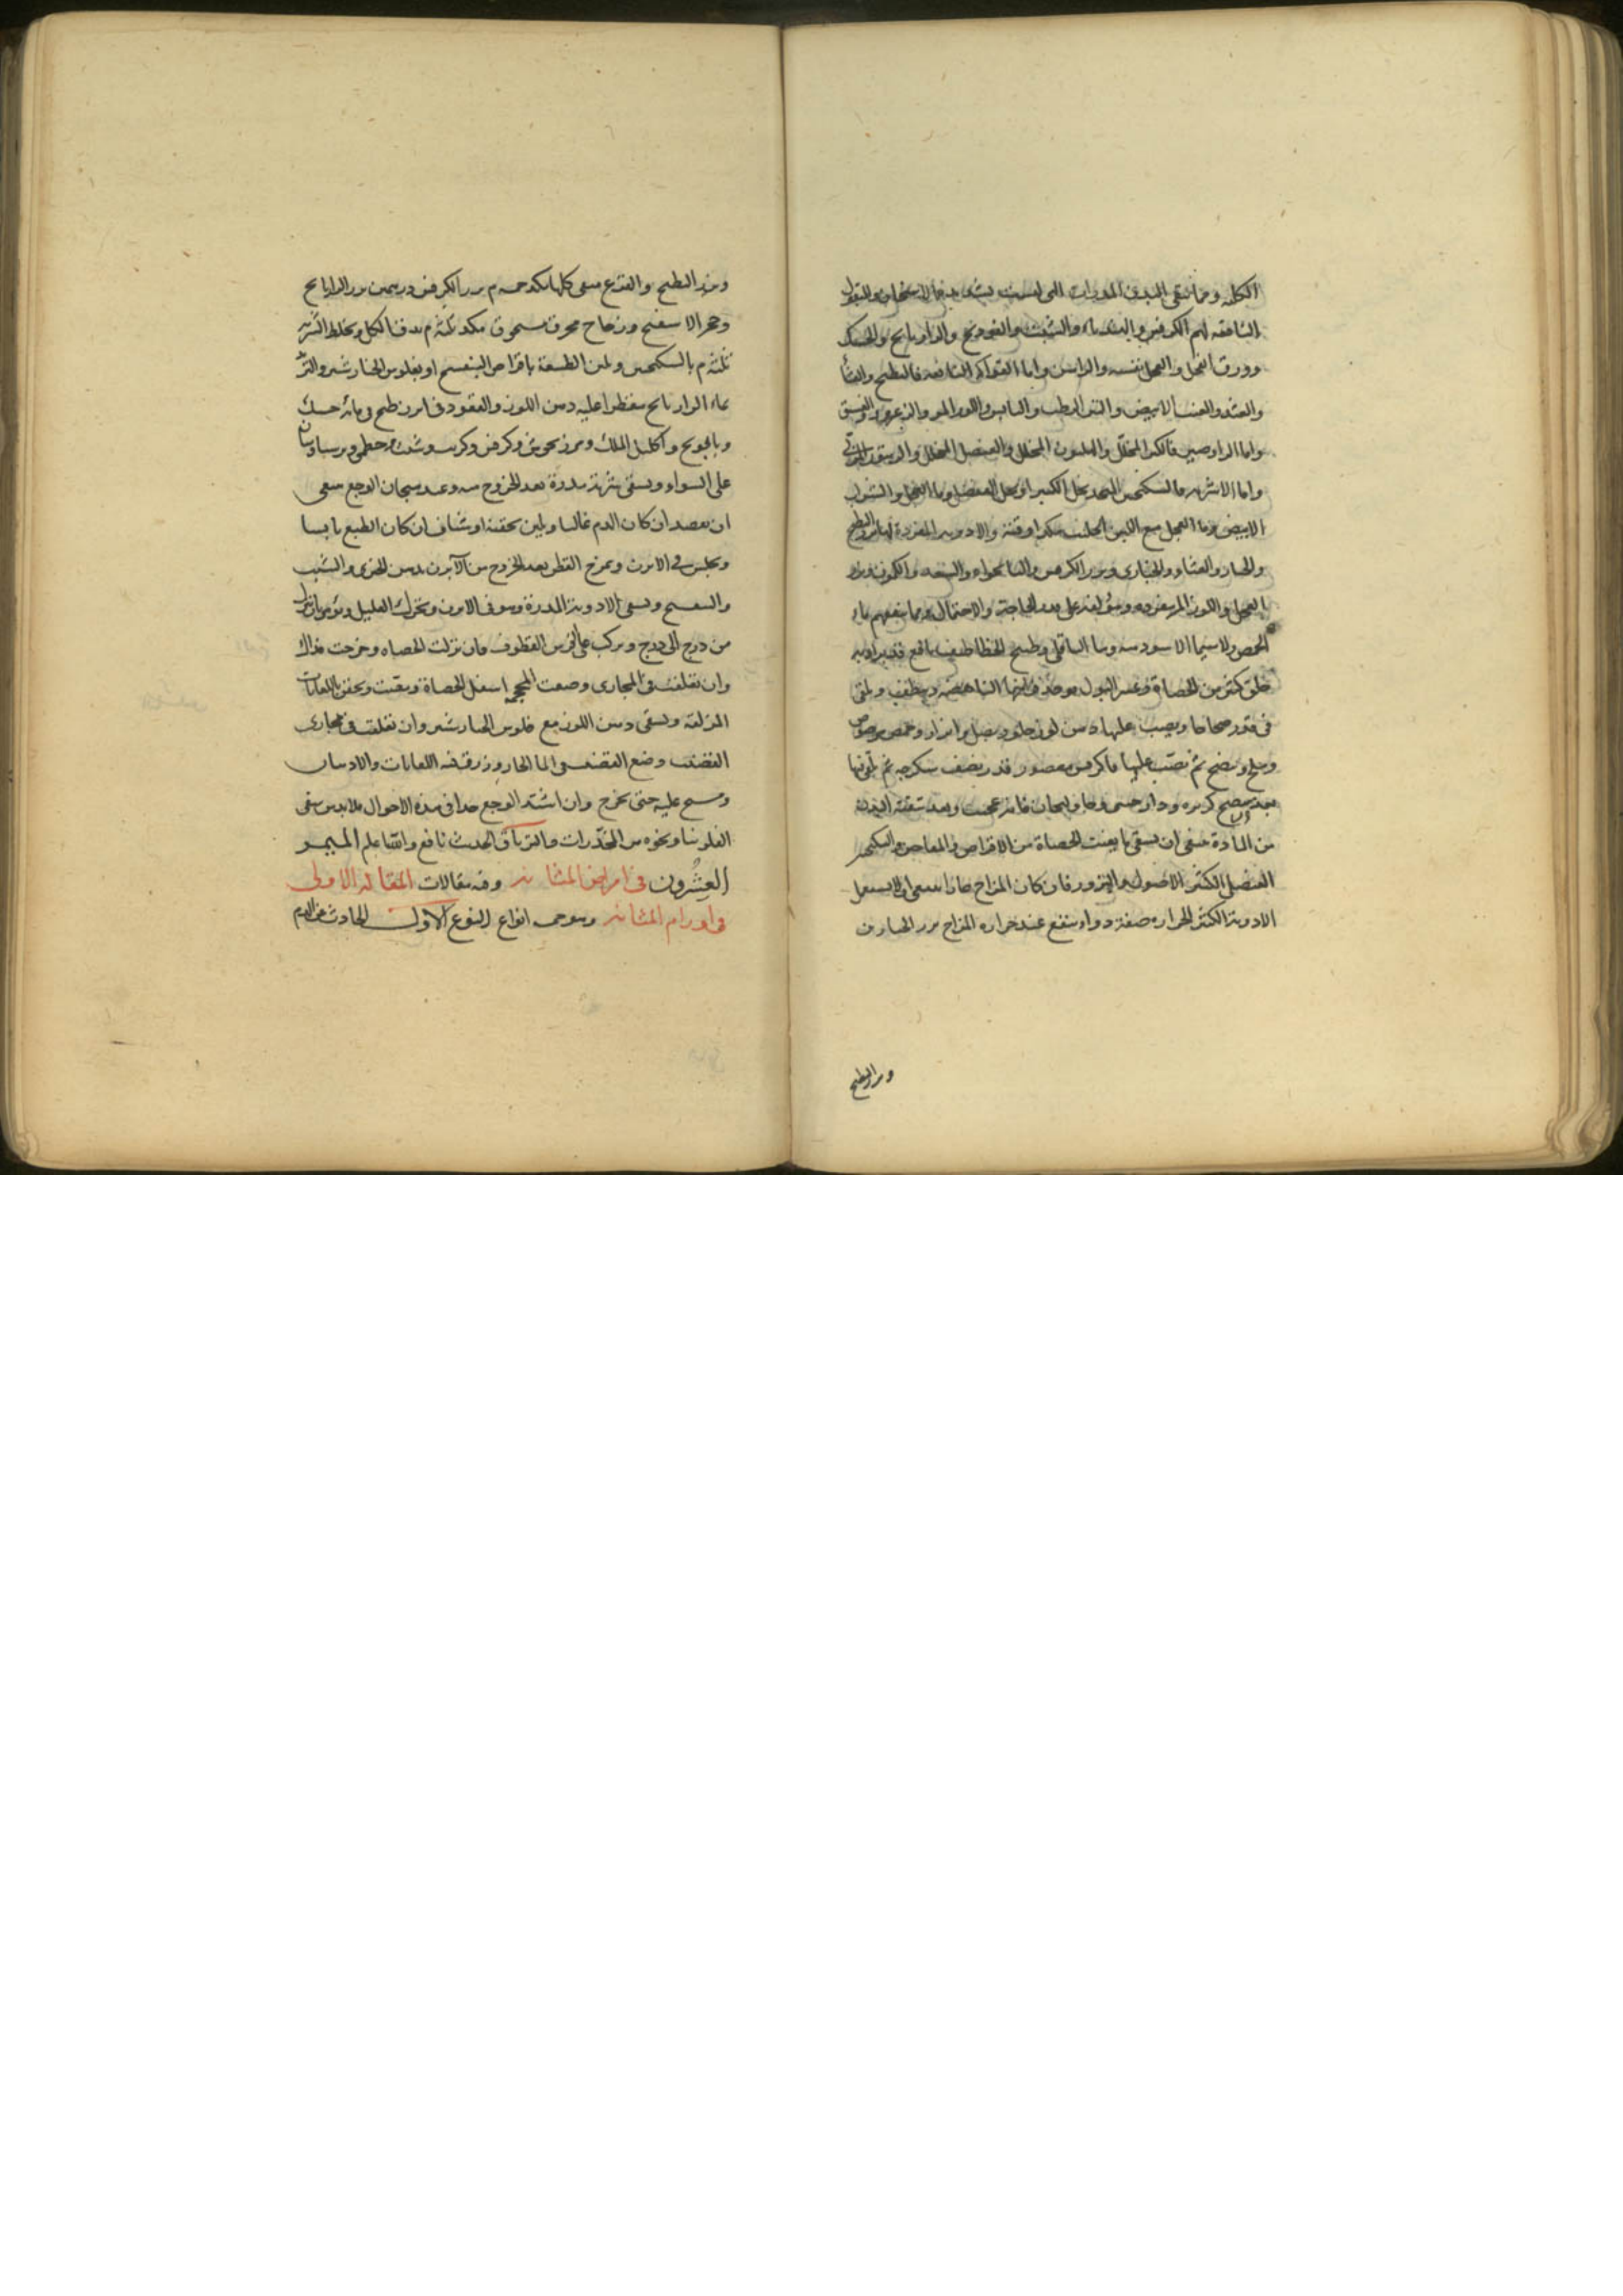 الكلية ومما ينقى البدن المدرات التى ليست بشديدة الاسخان والبقول
النافعة لهم الكرفس والهندباء والشبث والفودنج والرازيانج والحسك
وورق الفجل والفجل نفسه والراسن واما الفواكه النافعة فالبطيخ والقثا
والقثد والعنب الابيض والتين الرطب واليابس واللوز المر والزعرور والفستق
واما الرواصير فالكبر المخلل والهليون المخلل والعنصل المخلل
واما الاشربة فالسكنجبين المتخذ بخل الكبر او بخل العنصل وماء الفجل والشراب
الابيض وماء الفجل مع اللبن الحليب والادوية المفردة لهم بزر البطيخ
والخيار والقثاء والخبازى وبزر الكرفس والنانخواه والكمون وبزر
الفجل واللوز المر مفردة ومؤلفة على قدر الحاجة والاحتمال ومما ينفعهم ماء
الحمص ولا سيما الاسود منه وماء الباقلى وطبيخ الخطاطيف نافع
خلق كثير من الحصاة وعسر البول يوخذ فراخها الناهضة وينظف ويلقى
فى قدر صحاحا ويصب عليها دهن لوز حلو وبصل وابزار وحمص مرضوض
وملح ويطبخ ثم يصب عليها ماء كرفس معصور قدر نصف سكرجة ثم يلقى فيها
بعد النضج كزبرة ودارصينى وخاولنجان فانه عجيب وبعد تنقية البدن
من المادة ينبغى ان يسقى ما يفتت الحصاة من الاقراص والمعاجين والسكنجبين
العنصلى الكثير الاصول والبزور فان كان المزاج حارا ينبغى ان لا يستعمل
الادوية الكثيرة الحرارة صفة دواء ينفع عند حرارة المزاج بزر الخيارين
وبزر البطيخ
وبزر البطيخ والقرع منقى كلها مكد خمسة م بزر الكرفس درهمين بزر الرازيانج
وحجر الاسفنج وزجاج محرق مسحوق مكد ثلثة م يدق الكل ويخلط الشربة
ثلثة م بالسكنجبين ويلين الطبيعة باقراص البنفسج او بفلوس الخيارشنبر والتربد
بماء الرازيانج مقطرا عليه دهن اللوز والقعود فى ابزن طبخ فى مائه حسك
وبابونج واكليل الملك ومرزنجوش وكرفس وكرنب وشبث وخطمى وبرسياوشان
على السواء ويسقى شربة مدرة بعد الخروج منه وعند هيجان الوجع ينبغى
ان يفصد ان كان الدم غالبا ويلين بحقنة او شياف ان كان الطبع يابسا
ويجلس فى الابزن ويمرخ القطن بعد الخروج من الآبزن بدهن الخيرى والشبث
والبنفسج ويسقى الادوية المدرة وهو فى الابزن ويتحرك العليل ويؤمر بان ينزل
من درج الى درج ويركب على الفرس القطوف فان نزلت الحصاة وخرجت فذاك
وان تعلقت فى المجارى وضعت المحجمة اسفل الحصاة ومصت ويحقن باللعابات
المزلقة ويسقى دهن اللوز مع فلوس الخيارشنبر وان تعلقت فى مجارى
القضيب وضع القضيب فى الماء الحار وزرق فيه اللعابات والادهان
ومسح عليه حتى يخرج وان اشتد الوجع جدا فى هذه الاحوال فلا بد من سقى
الفلونيا ونحوه من المخدرات والترياق الحديث نافع والله اعلم الميمر
العشرون فى امراض المثانة وفيه مقالات المقالة الاولى
فى اورام المثانة وهو انواع النوع الاول الحادث من الدم